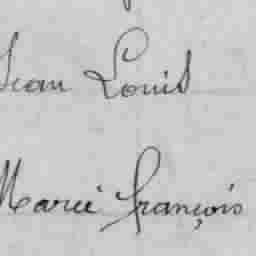 Jean Louis
Marie françois